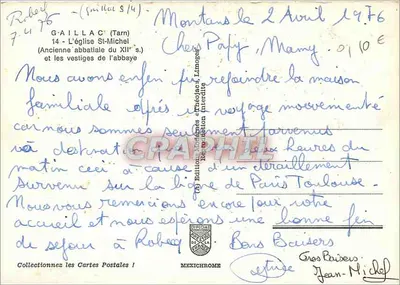 Robecq (Gaillac 81)
7.4.76
GAILLAC (Tarn)
14 - L'église St-Michel
(Ancienne abbatiale du XIIe s.)
et les vestiges de l'abbaye
Montans le 2 Avril 1976
Chers Papy, Mamy = 0,10 €
Nous avons enfin pu rejoindre la maison
familiale après un voyage mouvementé
car nous sommes seulement parvenus
à destination heures du
matin ceci à cause d'un déraillement
survenu sur la ligne de Paris Toulouse.
Nous vous remercions encore pour votre
accueil et nous espérons une bonne fin
de séjour à Robecq Bons Baisers
Gros Baisers
Jean-Michel
GRAPHIL
Reproduction interdite
Collectionnez les Cartes Postales !
MEXICHROME